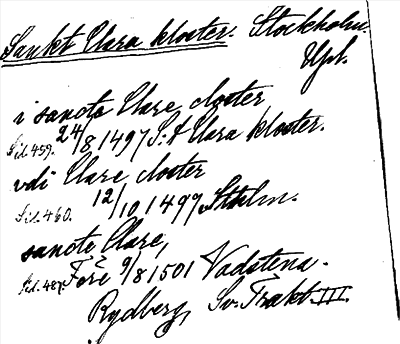 Sankt Clara kloster. Stockholm.
Upl.
i sancta Clare closter
Sid. 459. 24/8 1497 S:t Clara kloster.
vdi Clare closter
Sid. 460. 12/10 1497 Sthlm.
sancte Clare,
Sid. 487. Före 9/8 1501 Vadstena.
Rydberg, Sv. Trakt. III.